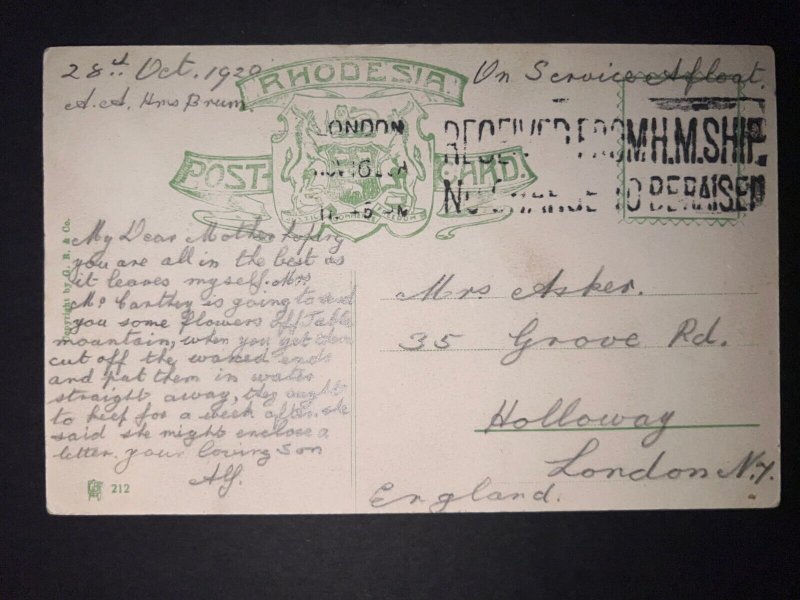 28th Oct. 1920
On Service Afloat.
A.A. Hms Brum
RHODESIA.
POST-CARD.
LONDON
RECEIVED FROM H.M. SHIP
NO CHARGE TO BE RAISED
My Dear Mother hoping
you are all in the best as
it leaves myself. Mrs
Mc Carthey is going to send
you some flowers off Table
mountain, when you get them
cut off the waxed ends
and put them in water
straight away, they ought
to keep for a week after. she
said she might enclose a
letter. your loving son
Alf.
Mrs Asker.
35 Grove Rd.
Holloway
London N.7.
England.
Copyright by G. B. & Co.
212